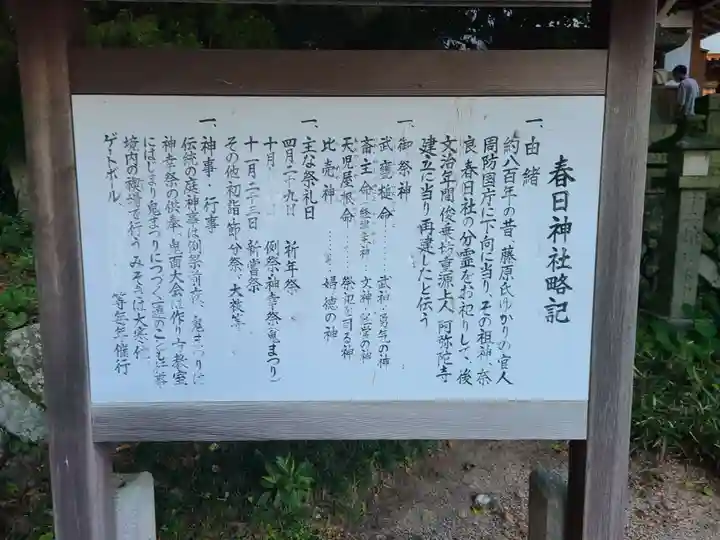 春日神社略記
一、由緒
約八百年の昔、藤原氏ゆかりの官人
周防国庁に下向に当り、その祖神、奈
良、春日社の分霊をお祀りして、後
文治年間俊乗坊重源上人、阿弥陀寺
建立に当り再建したと伝う
一、御祭神
武甕槌命……武神・勇気の神
斎主命(経津主神)……文神・
天児屋根命……祭祀を司る神
比売神……婦徳の神
一、主な祭礼日
四月二十九日 祈年祭
十月 例祭・神幸祭(鬼まつり)
十一月二十三日 新嘗祭
その他初詣・節分祭、大祓等
一、神事・行事
伝統の庭神事は例祭前夜、鬼まつりは
神幸祭の供奉、鬼面大会は作り方教室
にはじまり鬼まつりにつづく
境内の
ゲートボール 等毎年催行